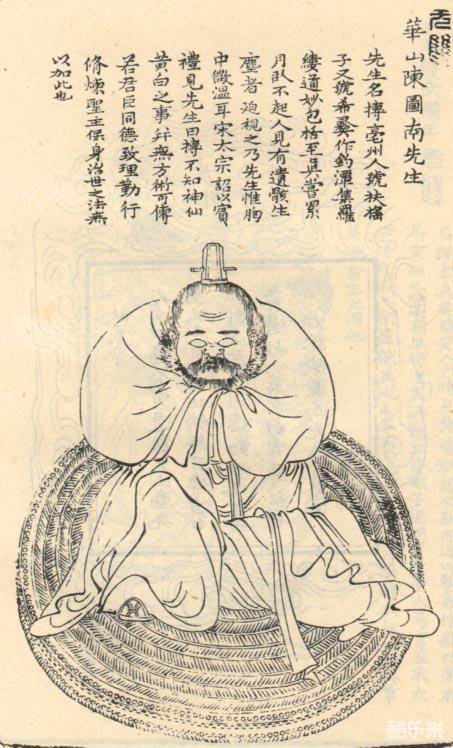 華山陳圖南先生
先生名摶亳州人號扶搖
子又號希夷作釣潭集羅
縷道妙包括至真嘗累
月臥不起人見有遺骸生
塵者迫視之乃先生惟胸
中微溫耳宋太宗詔以賓
禮見先生曰摶不知神仙
黃白之事幷無方術可傳
若君臣同德致理勤行
脩煉聖主保身治世之法無
以加此也
酷乐米